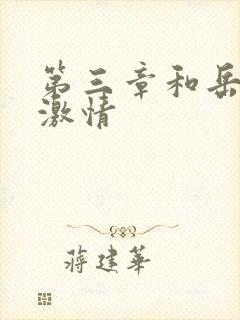 第三章和岳
激情
蒋建华